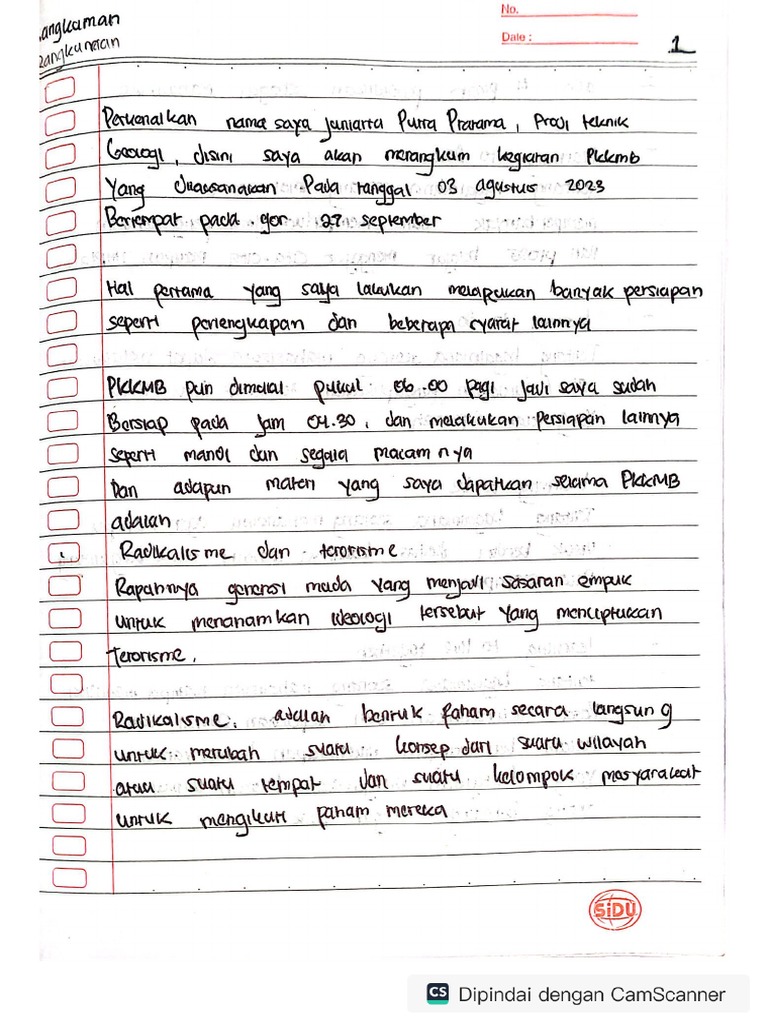 No.
Date :
1
angkuman
Rangkuman
Perkenalkan nama saya Juniarta Putra Pratama, Prodi teknik
Geologi, disini saya akan merangkum kegiatan Pkkmb
Yang dilaksanakan Pada tanggal 03 agustus 2023
Bertempat pada gor 27 september
Hal pertama yang saya lakukan melapukan banyak persiapan
seperti perlengkapan dan beberapa syarat lainnya
PKKMB pun dimulai pukul 06.00 pagi Jadi saya sudah
Bersiap pada jam 04.30, dan melakukan Persiapan lainnya
seperti mandi dan segala macam nya
Dan adapun materi yang saya dapatkan selama PKKMB
adalah
Radikalisme dan terorisme
Rapahnya generasi muda yang menjadi sasaran empuk
untuk menanamkan ideologi tersebut yang menciptakan
Terorisme.
Radikalisme. adalah bentuk paham secara langsung
untuk merubah suatu konsep dari suatu wilayah
atau suatu tempat dan suatu kelompok masyarakat
untuk mengikuti paham mereka
SiDU
CS Dipindai dengan CamScanner